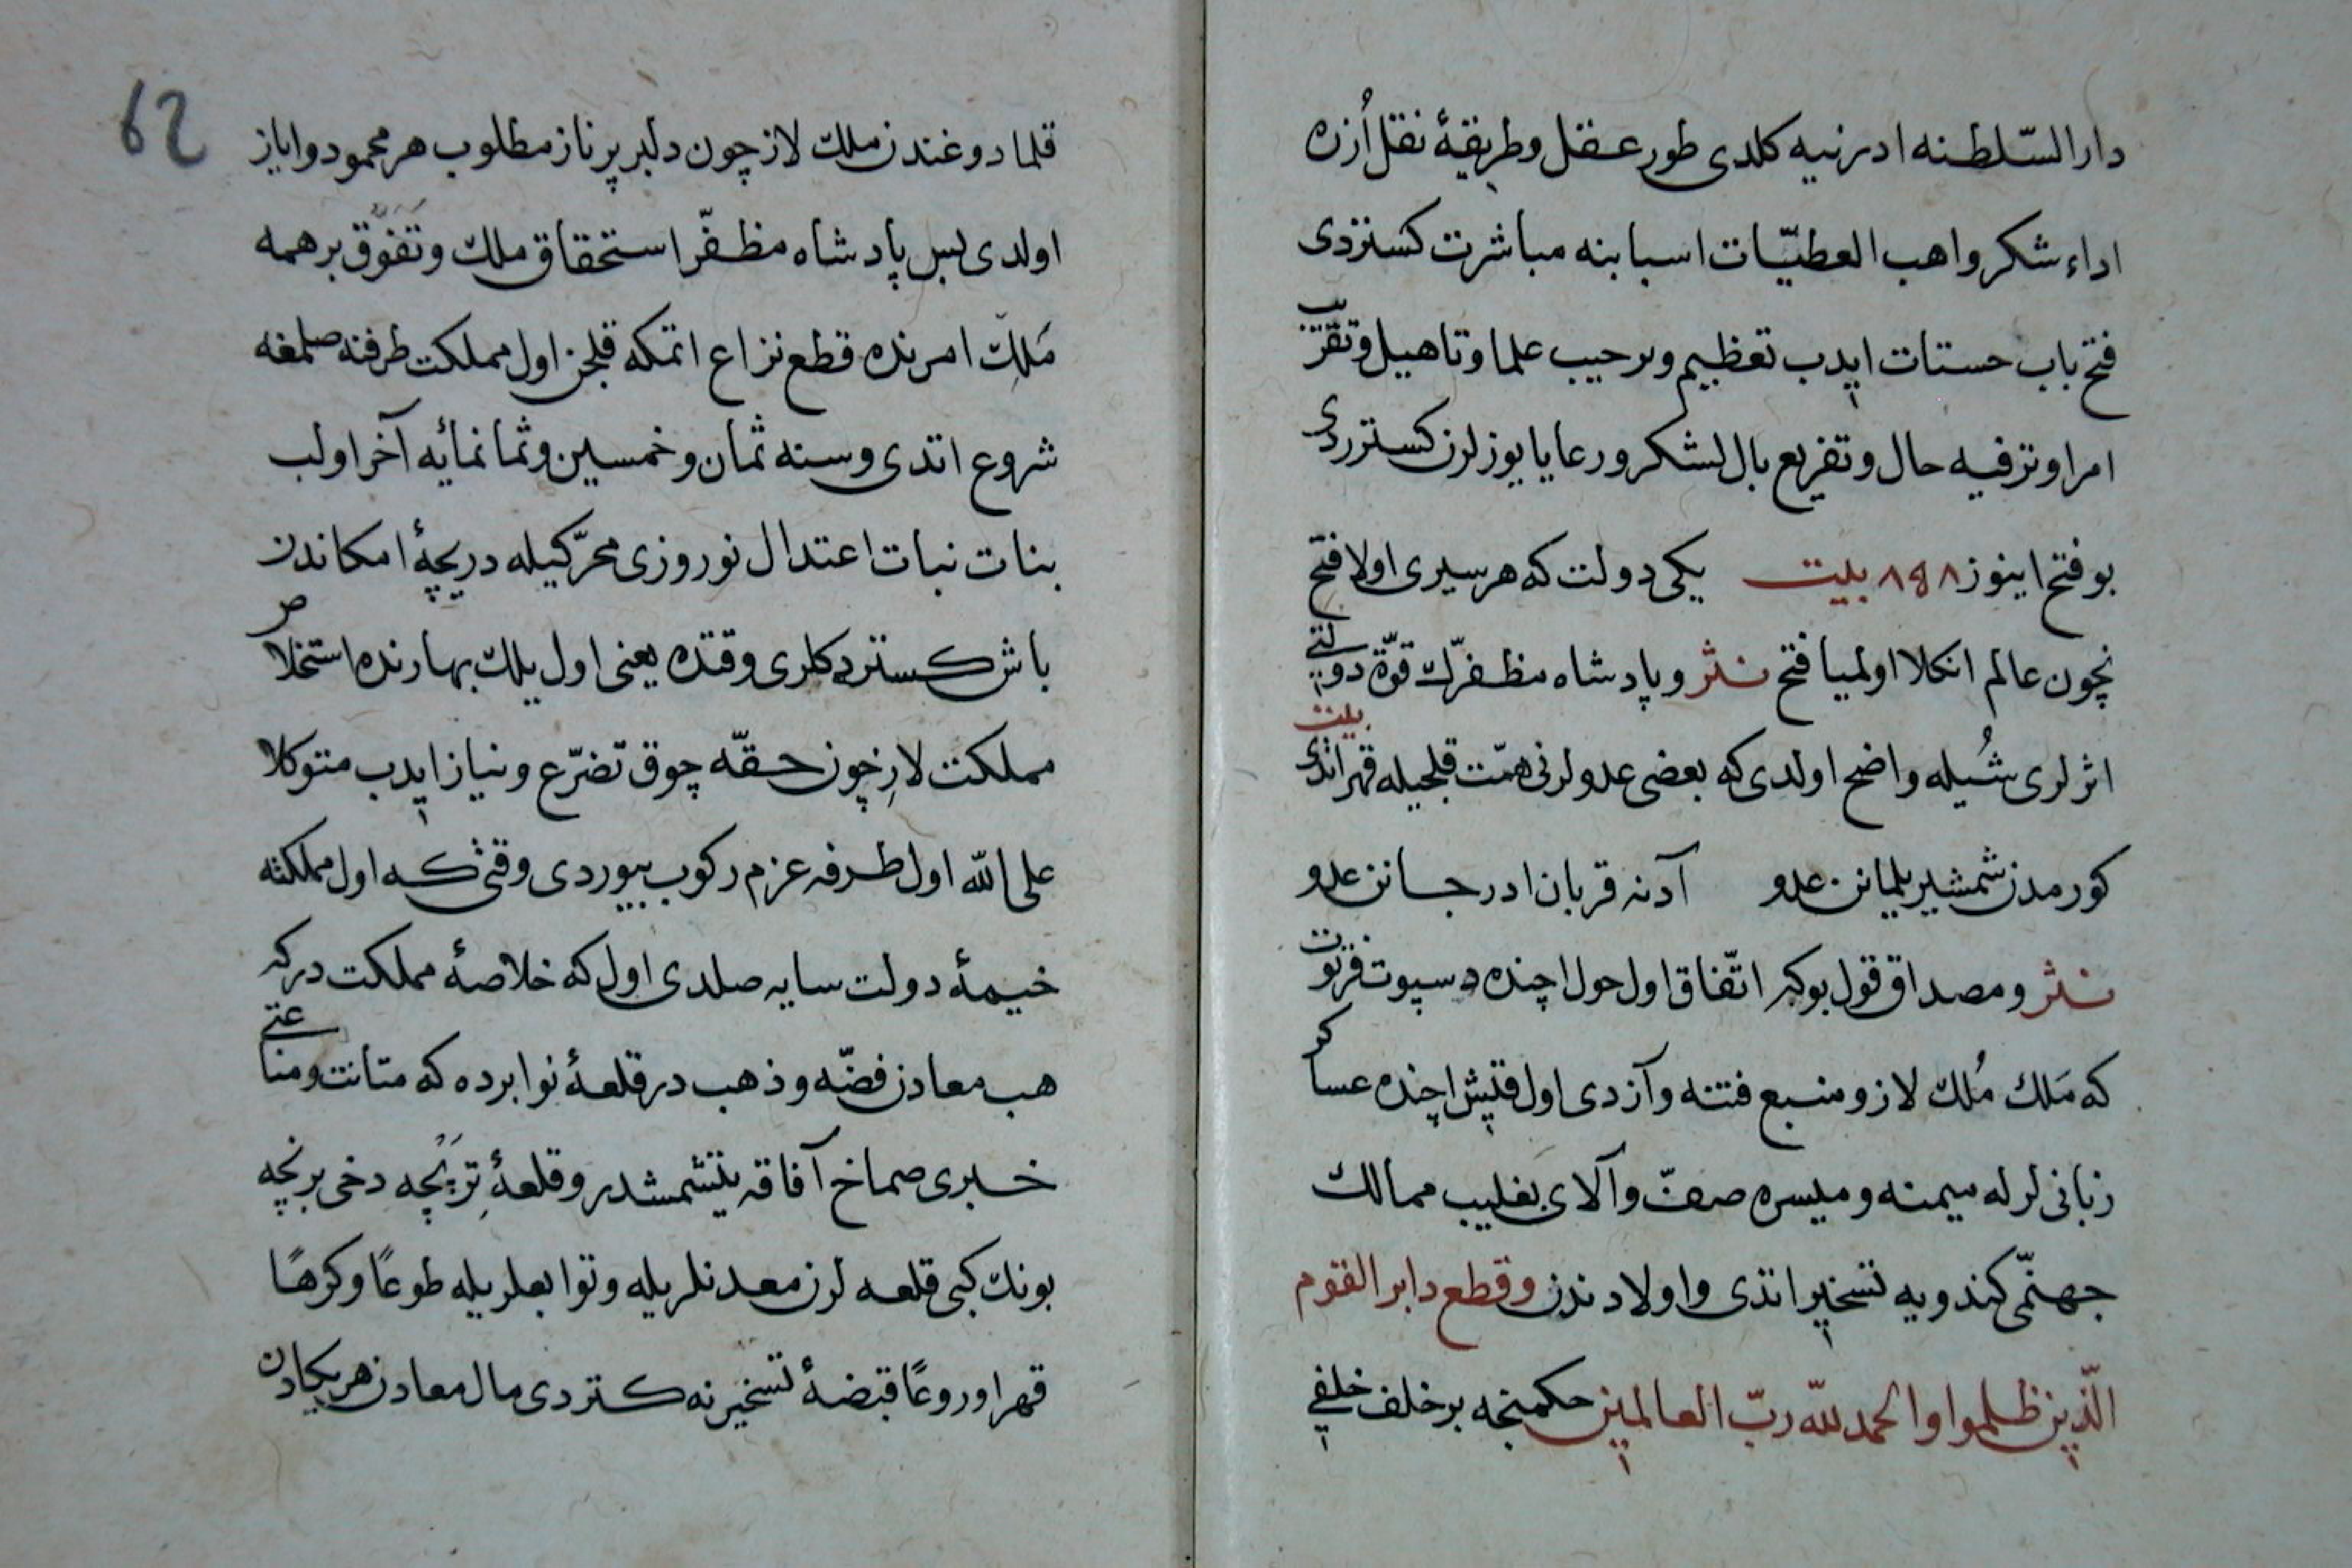 دار السّلطنه ادرنيه كلدى طور عقل و طريقهٔ نقل اُزره
اداء شكر واهب العطيّات اسبابنه مباشرت كستردى
فتح باب حسنات ايدب تعظيم و ترحيب علما و تاهيل و تقرّب
امرا و ترفيه حال و تفريع بال لشكر و رعايا يوزلرن كستردى
بو فتح اينوز ٨٥٨ بيت يكى دولت كه هر سيرى اولا فتح
نچون عالم انكلا اولميا فتح نثر و پادشاه مظفّرك قوّة دولتى
اثرلرى شُيله واضح اولدى كه بعضى عدولرنى همّت قلجيله قهر اتدى بيت
كورمدن شمشير يلمانن عدو آدنه قربان ادر جانن عدو
نثر و مصداق قول بوكه اتّفاق اول حول اچنده دسپوت فرتوت
كه مَلك مُلك لاز و منبع فتنه و آزدى اول قيش اچنده عساكر
زبانى لرله ميمنه و ميسره صفّ و آلاى بغليب ممالك
جهنّمى كندويه تسخير اتدى و اولادندن و قطع دابر القوم
الّذين ظلموا و الحمد للّه ربّ العالمين حكمنجه بر خلف خلفى
62
قلمادوغندن ملك لاز چون دلبر پرناز مطلوب هر محمود و اياز
اولدى بس پادشاه مظفّر استحقاق ملك و تَفَوُّق بر همه
مَلِك امرنده قطع نزاع اتمكه قلجن اول مملكت طرفنه صلمغه
شروع اتدى و سنه ثمان و خمسين و ثمانمائه آخر اولب
بنات نبات اعتدال نوروزى محرّكيله دريچهٔ امكاندن
باش كستردكلرى وقتده يعنى اول يلك بهارنده استخلاص
مملكت لازچون حقّه چوق تضرّع و نياز ايدب متوكلا
على اللّه اول طرفه عزم ركوب بيوردى وقتى كه اول مملكته
خيمهٔ دولت سايه صلدى اول كه خلاصهٔ مملكت دركه
هب معادن فضّه و ذهب در قلعهٔ نوابرده كه متانت و مناعتى
خبرى صماخ آفاقه يتشمشدر و قلعهٔ تِرَپْچه دخى برنچه
بونك كبى قلعه لرن معدنلريله و توابعلريله طوعًا و كرهًا
قهرا و روعًا قبضهٔ تسخيرنه كستردى مال معادن هر يكادن